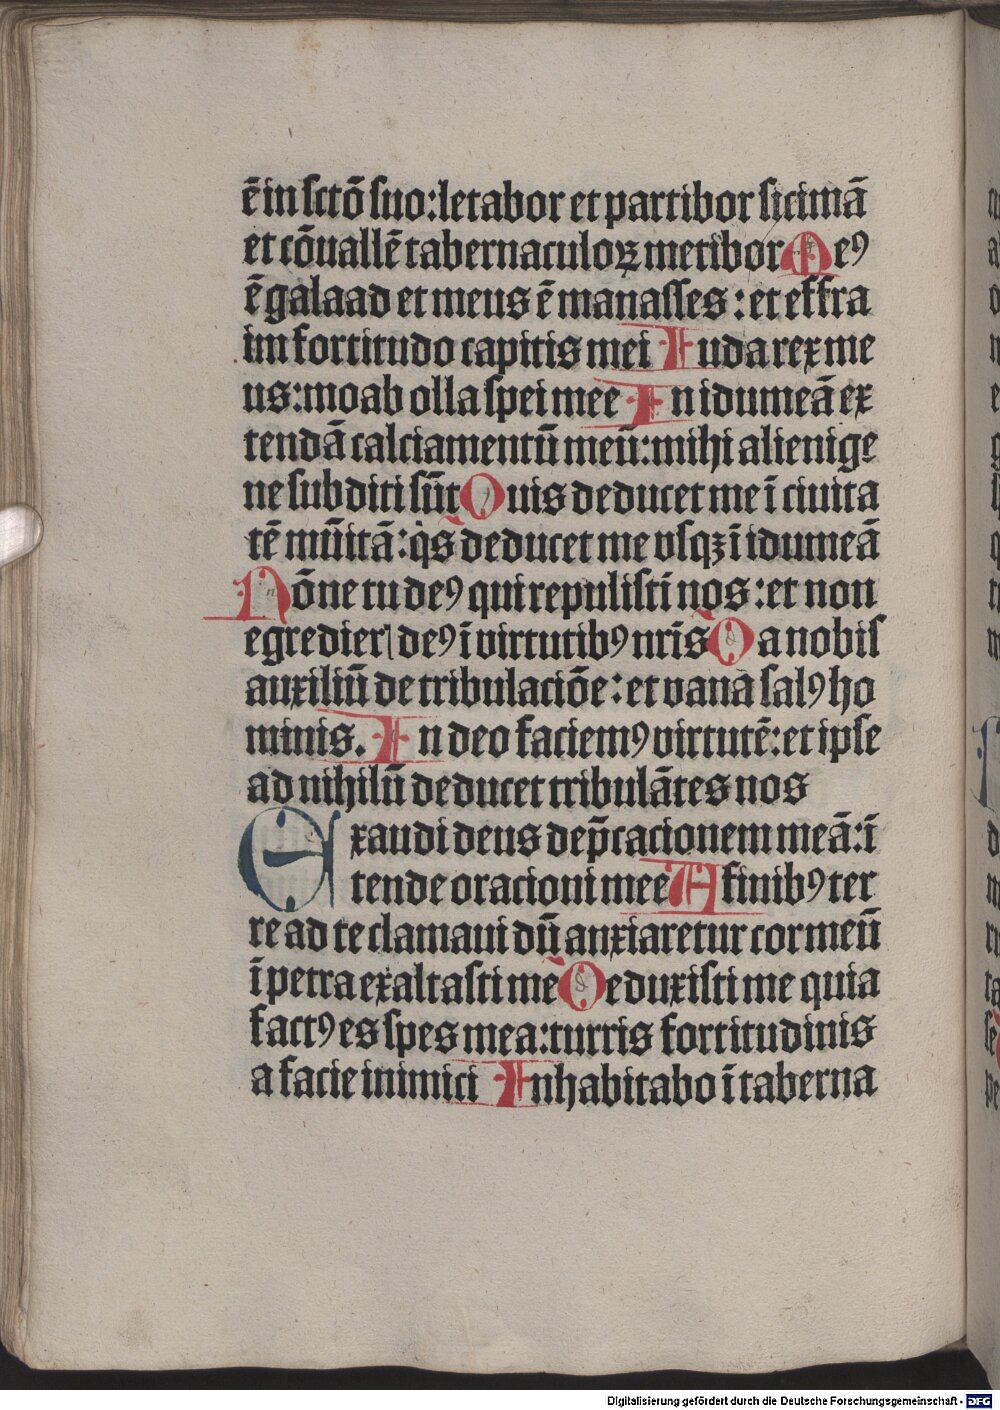 ē in sctō suo: letabor et partibor sicimā
et cōuallē tabernaculoꝝ metibor Meꝯ
ē galaad et meus ē manasses: et effra
im fortitudo capitis mei Iuda rex me
us: moab olla spei mee In idumeā ex
tendā calciamentū meū: mihi alienige
ne subditi sūt Quis deducet me ī ciuita
tē mūitā: qͥs deducet me vsqꝫ ī idumeā
Nōne tu deꝯ qui repulisti nos: et non
egredier deꝯ ī virtutibꝯ nr̄is Da nobis
auxiliū de tribulaciōe: et vana salꝯ ho
minis. In deo faciemꝯ virtutē: et ipse
ad nihilū deducet tribulātes nos
Exaudi deus dep̄cacionem meā: ī
tende oracioni mee A finibꝯ ter
re ad te clamaui dū anxiaretur cor meū
ī petra exaltasti me Deduxisti me quia
factꝯ es spes mea: turris fortitudinis
a facie inimici Inhabitabo ī taberna
Digitalisierung gefördert durch die Deutsche Forschungsgemeinschaft - DFG